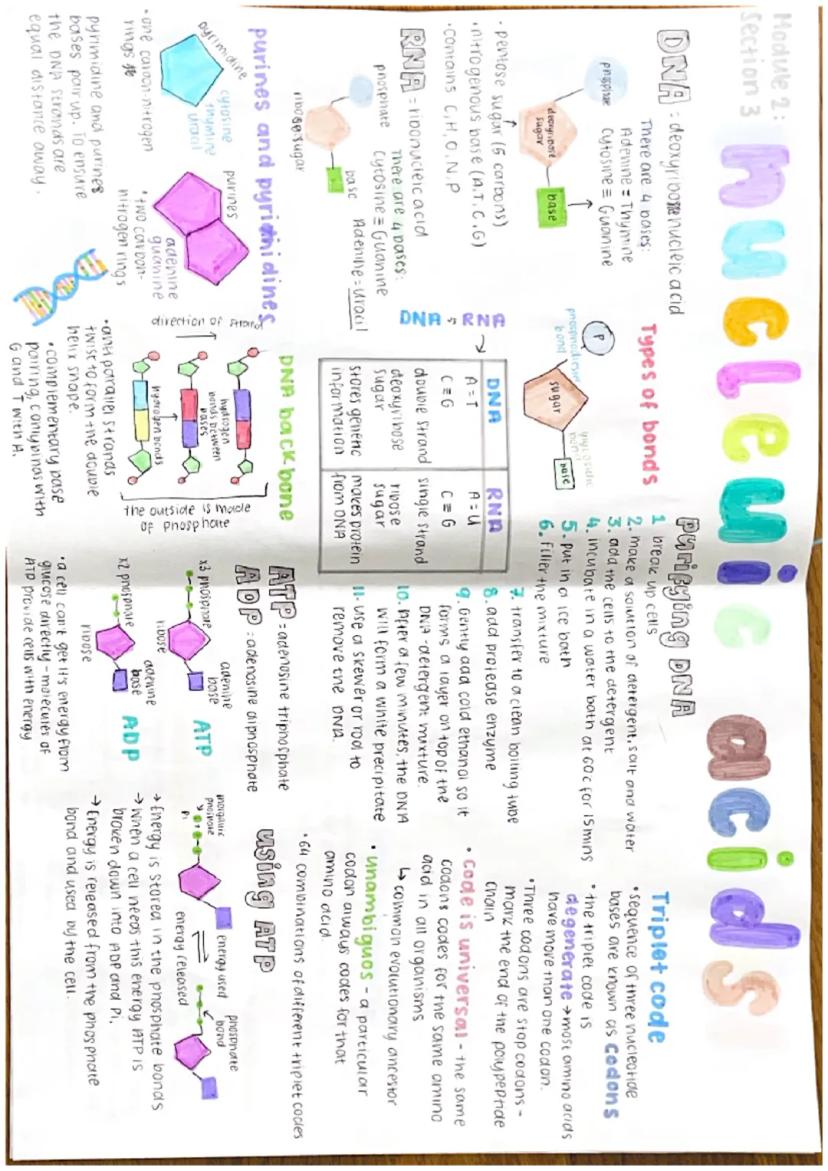 Module 2:
Section 3
nucleuic acids
DNA = deoxyribosenucleic acid
There are 4 bases:
Adenine = Thymine
Cytosine ≡ Guanine
phosphate
deoxyribose
sugar
base
• pentose sugar (5 carbons)
• nitrogenous base (A,T,C,G)
• contains C, H, O, N, P
RNA = ribonucleic acid
There are 4 bases:
Cytosine ≡ Guanine
Adenine = Uracil
phosphate
base
ribose sugar
purines and pyrimidines
pyrimidine
cytosine
thymine
uracil
• one carbon-nitrogen
rings
purines
adenine
guanine
• two carbon-
nitrogen rings
pyrimidine and purines
bases pair up. To ensure
the DNA strands are
equal distance away.
Types of bonds
P
phosphodiester
bond
sugar
glycosidic
bond
base
DNA vs RNA
DNA
RNA
A=T
A=U
C≡G
C≡G
double strand
single strand
deoxyribose
sugar
ribose
sugar
stores genetic
information
makes protein
from DNA
DNA backbone
direction of strand
hydrogen
bonds between
bases
hydrogen bonds
the outside is made
of phosphate
• anti parallel strands
twist to form the double
helix shape.
• complementary base
pairing, C only binds with
G and T with A.
purifying DNA
1. break up cells
2. make a solution of detergent, salt and water
3. add the cells to the detergent
4. incubate in a water bath at 60c for 15mins
5. put in a ice bath
6. filter the mixture
7. transfer to a clean boiling tube
8. add protease enzyme
9. Gently add cold ethanol so it
forms a layer on top of the
DNA-detergent mixture.
10. After a few minutes, the DNA
will form a white precipitate
11. use a skewer or rod to
remove the DNA.
ATP = adenosine triphosphate
ADP = adenosine diphosphate
x3 phosphate
ribose
adenine
base
ATP
x2 phosphate
ribose
adenine
base
ADP
• a cell can't get its energy from
glucose directly - molecules of
ATP provide cells with energy
Triplet code
• sequence of three nucleotide
bases are known as codons
• the triplet code is
degenerate → most amino acids
have more than one codon.
• Three codons are stop codons -
mark the end of the polypeptide
chain
• Code is universal - the same
codons codes for the same amino
acid in all organisms
↳ common evolutionary ancestor
• unambiguos - a particular
codon always codes for that
amino acid.
• 64 combinations of different triplet codes
using ATP
inorganic
phosphate
Pi
energy used
energy released
phosphate
bond
→ Energy is stored in the phosphate bonds
→ When a cell needs this energy ATP is
broken down into ADP and Pi.
→ Energy is released from the phosphate
bond and used by the cell.